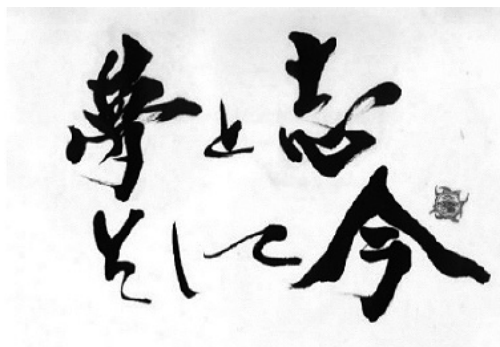 夢と志
そして今